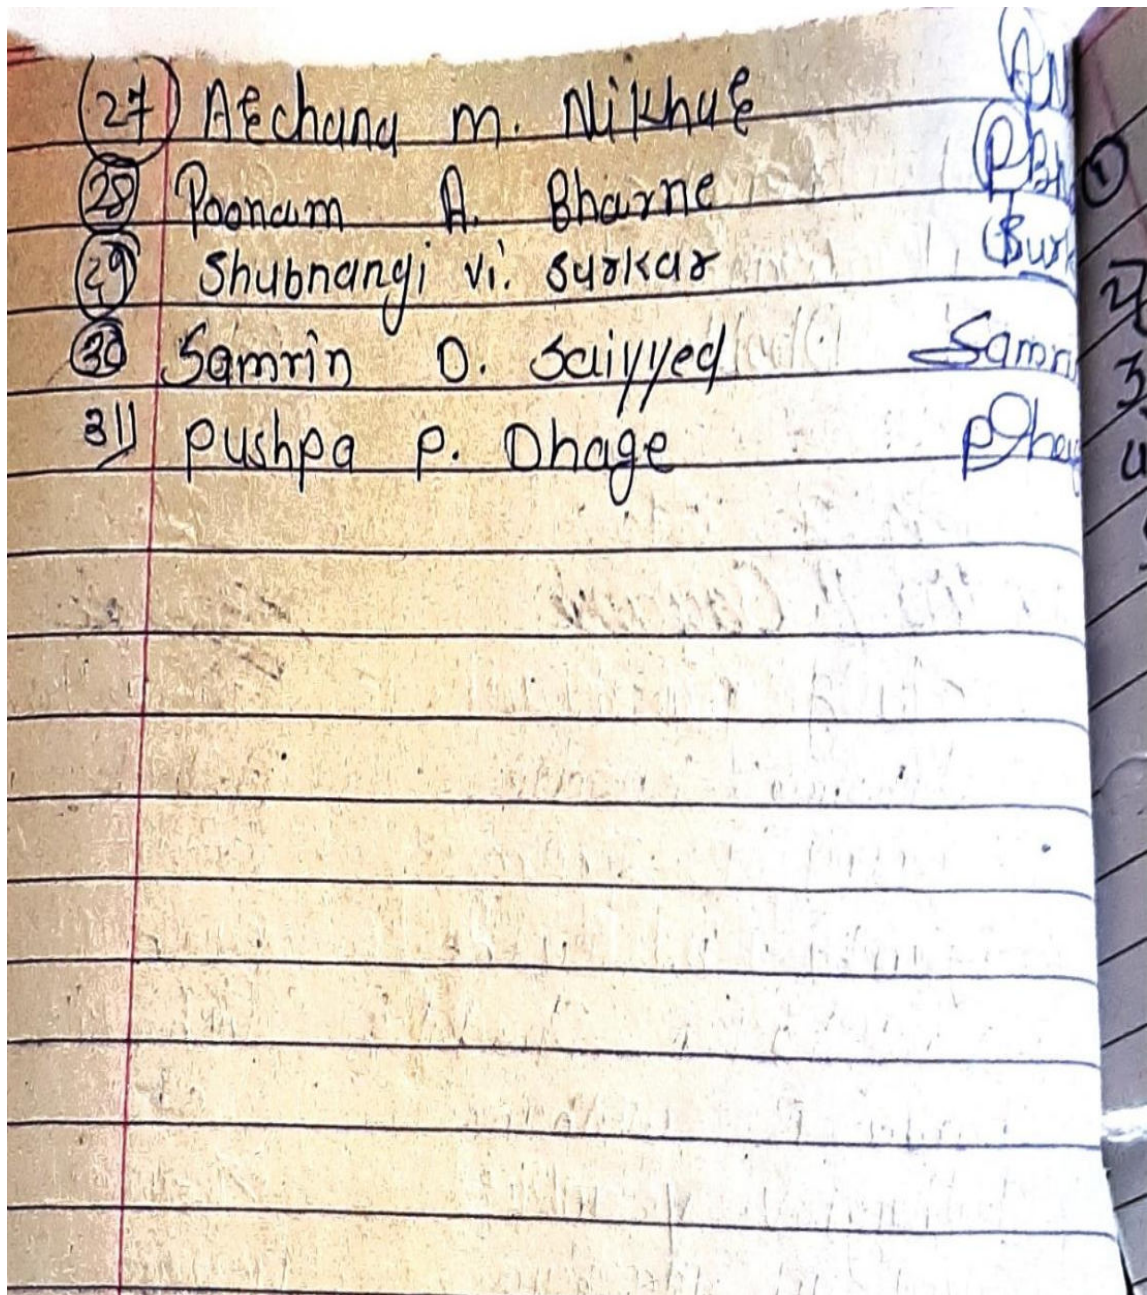 27 Archana m. Nikhar
28 Poonam A. Bharne
29 Shubhangi Vi. Surkar
30 Samrin O. Saiyyed Samri
31) Pushpa P. Dhage
1
2)
3
4